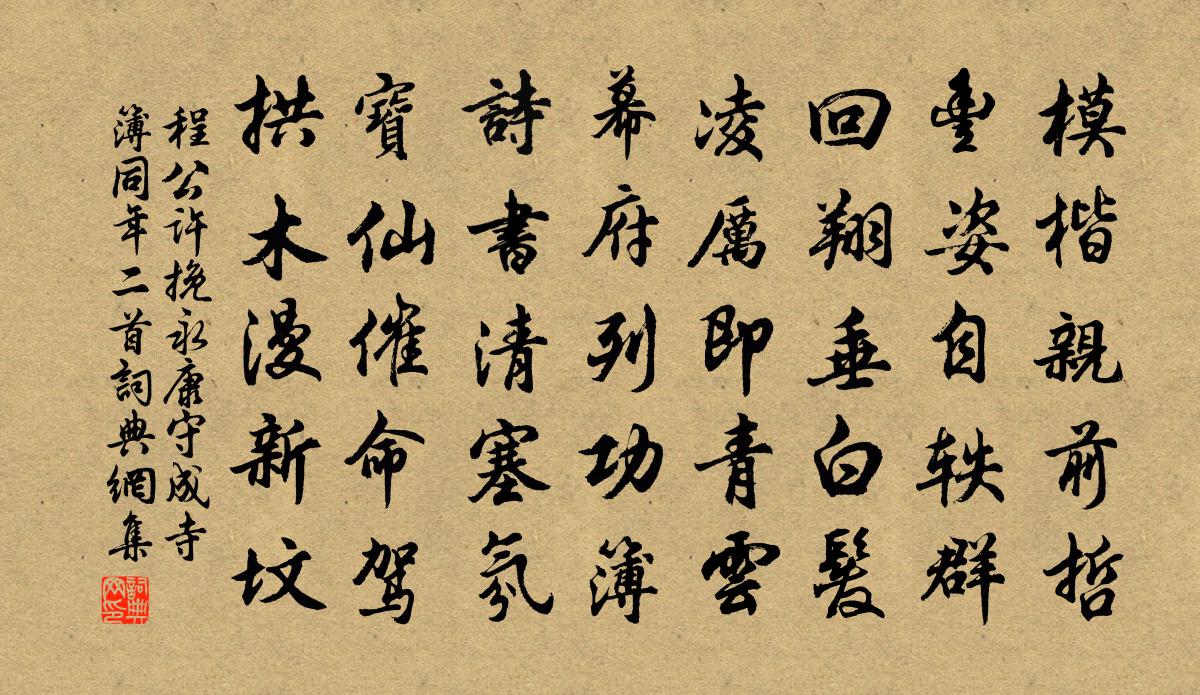 模楷親前哲
豊姿自軼群
回翔垂白髮
凌厲即青雲
幕府列功簿
詩書清塞氛
寶仙催命駕
拱木漫新墳
程公許挽永康守成寺
簿同年二首詞典網集
詞典
网印